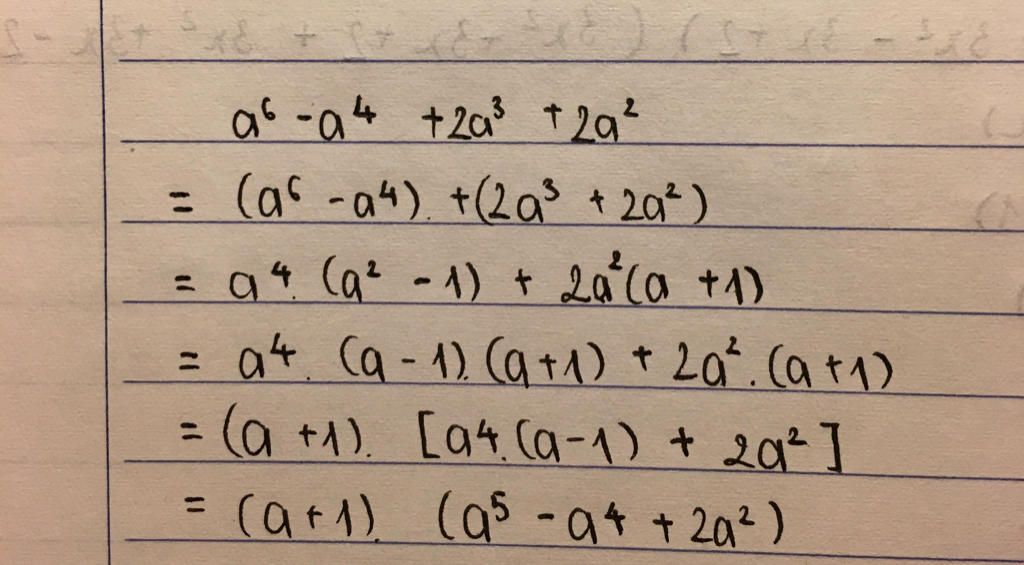 a⁶ - a⁴ + 2a³ + 2a²
= (a⁶ - a⁴). + (2a³ + 2a²)
= a⁴. (a² - 1) + 2a²(a + 1)
= a⁴. (a - 1). (a + 1) + 2a². (a + 1)
= (a + 1). [a⁴. (a - 1) + 2a²]
= (a + 1). (a⁵ - a⁴ + 2a²)